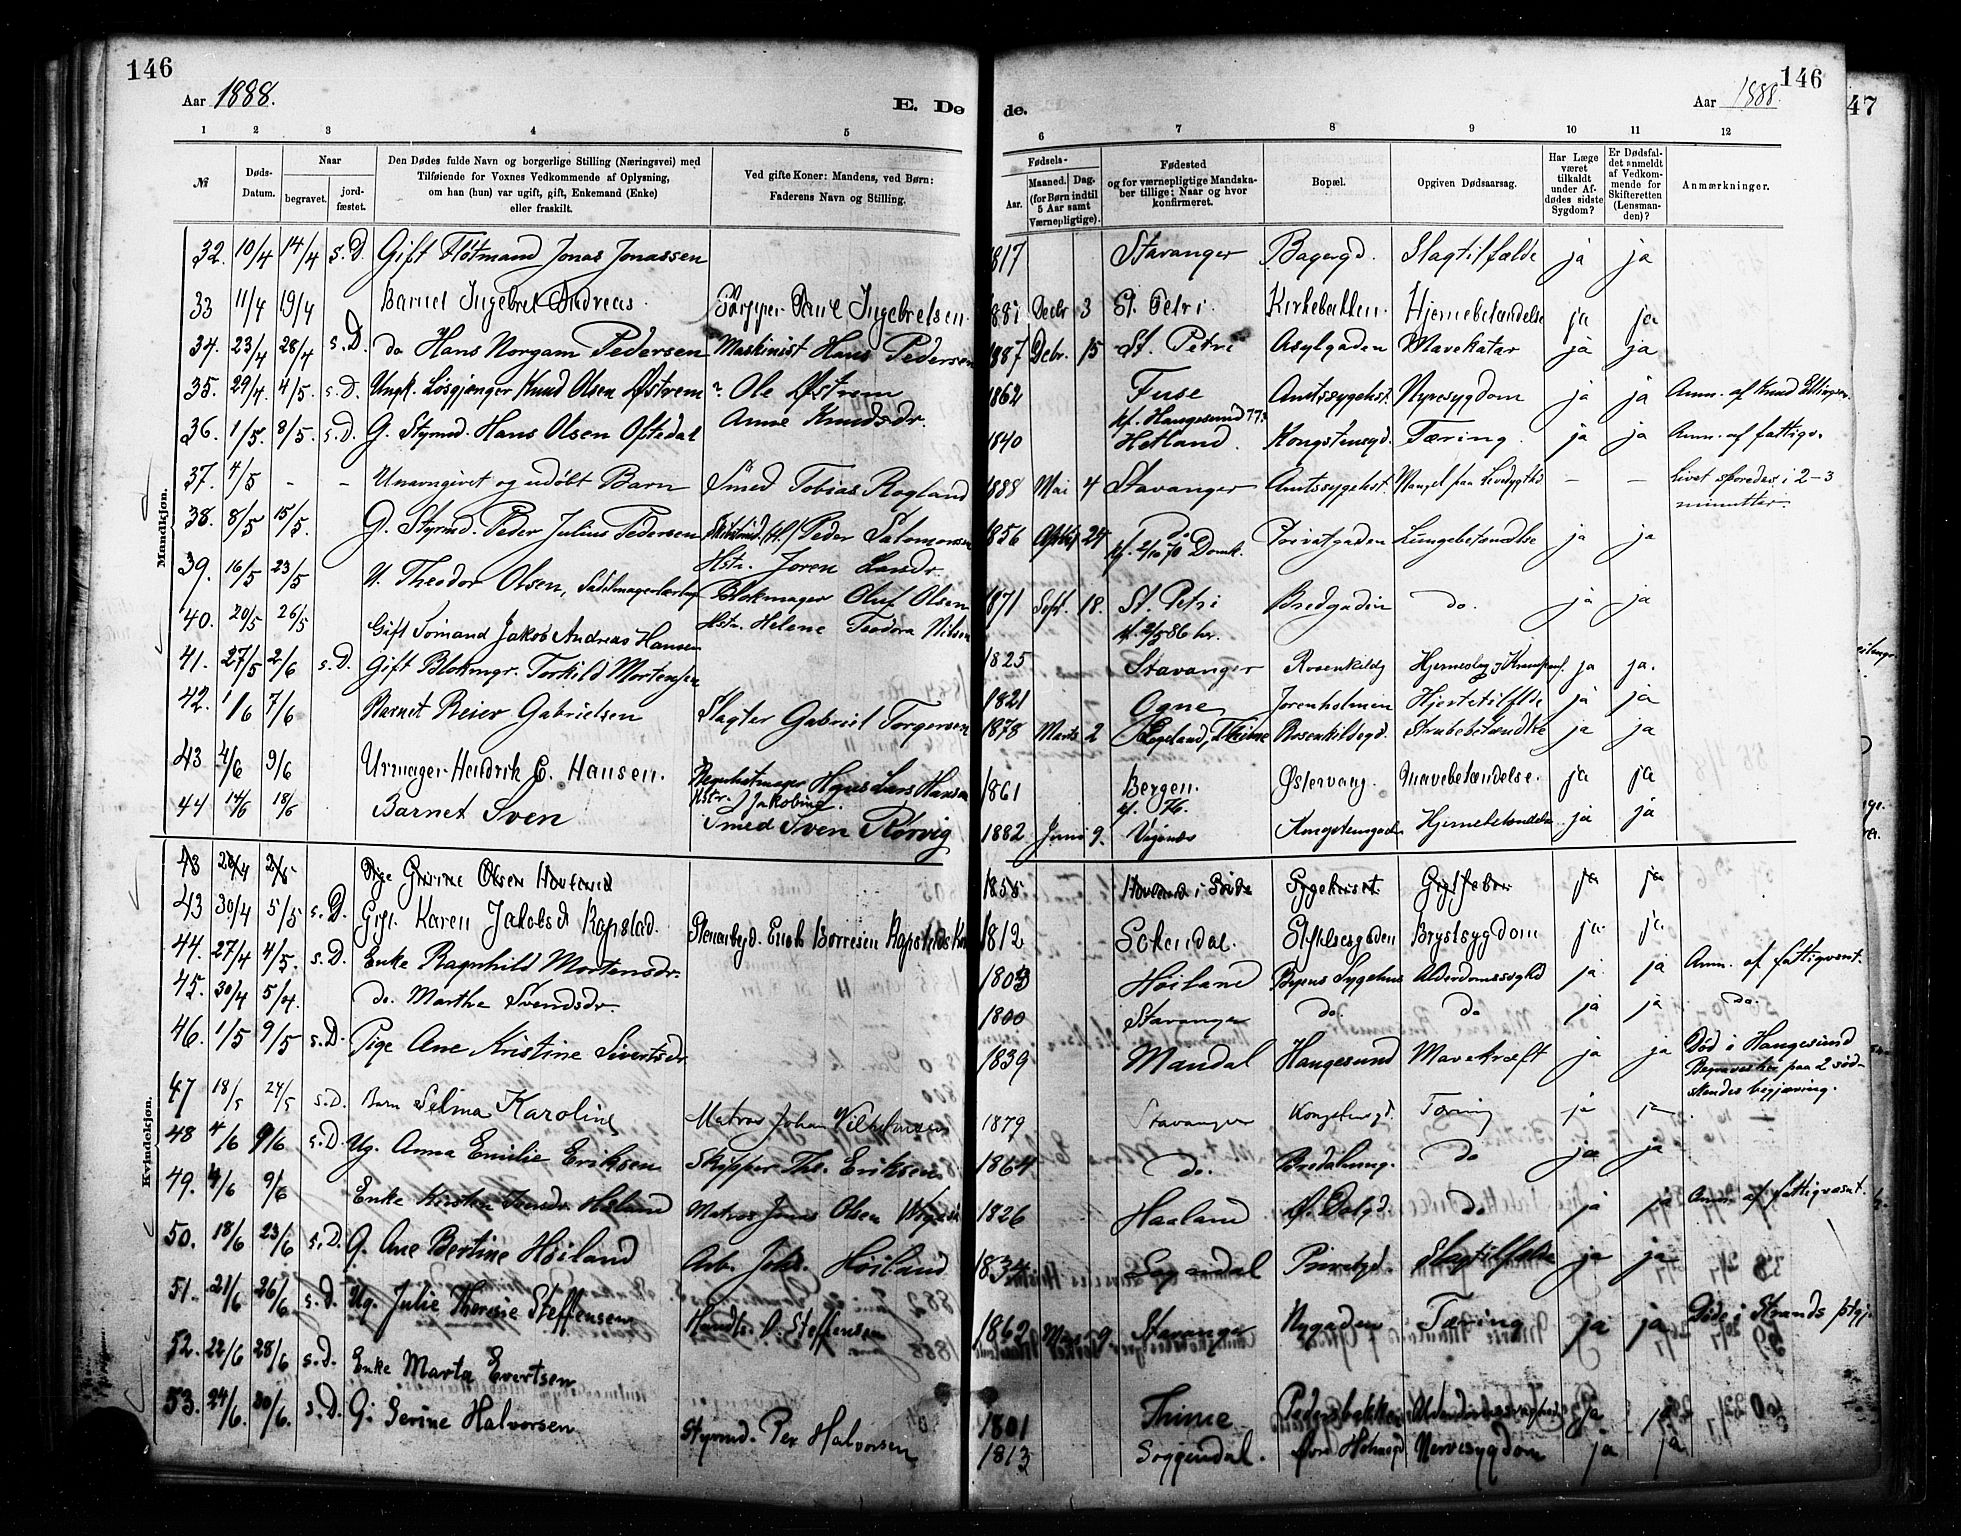 146
Aar 1888.
E. Dø
1 2 3 4 5
№
Døds-Datum.
Naar
begravet.
jord-fæstet.
Den Dødes fulde Navn og borgerlige Stilling (Næringsvei) med
Tilføiende for Voxnes Vedkommende af Oplysning,
om han (hun) var ugift, gift, Enkemand (Enke)
eller fraskilt.
Ved gifte Koner: Mandens, ved Børn:
Faderens Navn og Stilling.
Mandkjøn.
32. 10/4 14/4 s.D. Gift Flötmand Jonas Jonassen
33 11/4 19/4 Barnet Ingebret Andreas Skipper Paul Ingebretsen
34. 23/4 28/4 s.D. do Hans Norgam Pedersen Maskinist Hans Pedersen
35. 29/4. 4/5. s.D. Ungk. Løsgjænger Knud Olsen Østrem ? Ole Østrem
Anne Knudsdr.
36. 1/5. 8/5. s.D. G. Styrmd. Hans Olsen Oftedal
37. 4/5 - - Unavngivet og udøbt Barn Smed Tobias Rogland
38. 8/5 15/5. G. Styrmd. Peder Julius Pedersen Peder Salomonsen
Hstr. Joren
39. 16/5 23/5 U. Theodor Olsen, Sadelmagerlærling Blokmager Oluf Olsen
Hstr. Helene Teodora Nilsen
40. 20/5 26/5 Gift Sömand Jakob Andreas Hansen
41. 27/5 2/6 s.D. Gift Blokmgr. Torkild Mortensen
42. 1/6 7/6 Barnet Reier Gabrielsen Slagter Gabriel Torgersen
43 4/6 9/6 Urmager Hendrik E. Hansen. Hans Lars Hansen
Hstr. Jakobine.
44 14/6 18/6 Barnet Sven Smed Sven Rørvig
Kvindekjøn.
43 2/5 Pige Gurine Olsen
43 30/4 5/5 s.D. Gift. Karen Jakobsd Rapstad. Stenarbejd. Enok Børresen
44. 27/4 4/5. s.D. Enke Ragnhild Mortensdr.
45. 30/4 5/4. do. Marthe Svendsdr.
46. 1/5 9/5 s.D. Pige Ane Kristine Sivertsdr
47 18/5 24/5 s.D. Barn Selma Karoline Matros Johan Vilhelmsen
48 4/6 9/6 s.D. Ug. Anna Emilie Eriksen Skipper Ths. Eriksen
49. 4/6 9/6 Enke Matros Jonas Olsen
50. 18/6 23/6 s.D. G. Ane Bertine Höiland Arb. Johs. Höiland
51. 21/6 26/6 s.D. Ug. Julie Therese Steffensen Steffensen
52. 22/6 28/6 s.D. Enke Marta Evertsen
53. 24/6. 30/6. s.D. G. Serine Halvorsen Styrmd. Per Halvorsen
146
de.
Aar 1888.
47
6 7 8 9 10 11 12
Fødsels-
Aar.
Maaned. Dag.
(for Børn indtil
5 Aar samt
Værnepligtige).
Fødested
og for værnepligtige Mandska-
ber tillige: Naar og hvor
konfirmeret.
Bopæl.
Opgiven Dødsaarsag.
Har Læge
været
tilkaldt
under Af-
dødes sidste
Sygdom?
Er Dødsfal-
det anmeldt
af Vedkom-
mende for
Skifteretten
(Lensman-
den)?
Anmærkninger.
1817 Stavanger Bagergd. Slagtilfælde ja ja
1881 Decbr 3 St. Petri Kirkebakken Hjernebetændelse ja ja
1887 Debr. 15 St. Petri Asylgaden Mavekatar ja ja
1862 Fuse Amtssygehst. Nyresygdom ja ja Anm. af Knud
kf. Haugesund 77.
1840 Hetland. Kongstensgd. Tæring. ja ja Anm. af fattigv.
1888 Mai 4 Stavanger Amtssygehst. Mangel paa - - Livet sporedes i 2-3
minutter.
1856 24 Do. Privatgaden Lungebetændelse ja ja
kf. 2/10 70 Domk.
1871 Sept. 18. St. Petri Bredgaden do. ja ja
kf. 2/5 86 hr.
1825 Stavanger Rosenkildg ja ja.
1821 Ogne Jorenholmen Hjertetilflde ja ja
1878 Marts 2 Thime Rosenkildegd. Strubebetændlse ja ja
1861 Bergen. Østervaag. Mavebetændelse. ja ja
kf. 76.
1882 Juni 9. Kongstensgaden Hjernebetændelse ja ja
1858 Sygehuset. Gigtfeber ja ja
1812 Sokendal. Brystsygdom ja. ja.
1803 Høiland Byens Sygehus ja ja Anm. af fattigvæsnt.
1800 Stavanger do. do ja ja do.
1839 Mandal Haugesund Mavekræft ja ja Død i Haugesund
Begraves her paa 2 sød-
skendes begjæring.
1879 Stavanger Kongstensgd. Tæring ja ja
1864 do. do ja ja
1826 Haaland do ja ja Anm. af fattigvæsnt.
1834 Privatgd. Slagtilfælde ja ja
1862 9 Stavanger Nygaden Tæring ja ja Døde i Strands prgj.
1801 Thime. Pedersbakken Alderdomssvaghed ja ja
1813 Soggendal. Øvre Holmegd Nervesygdom ja ja